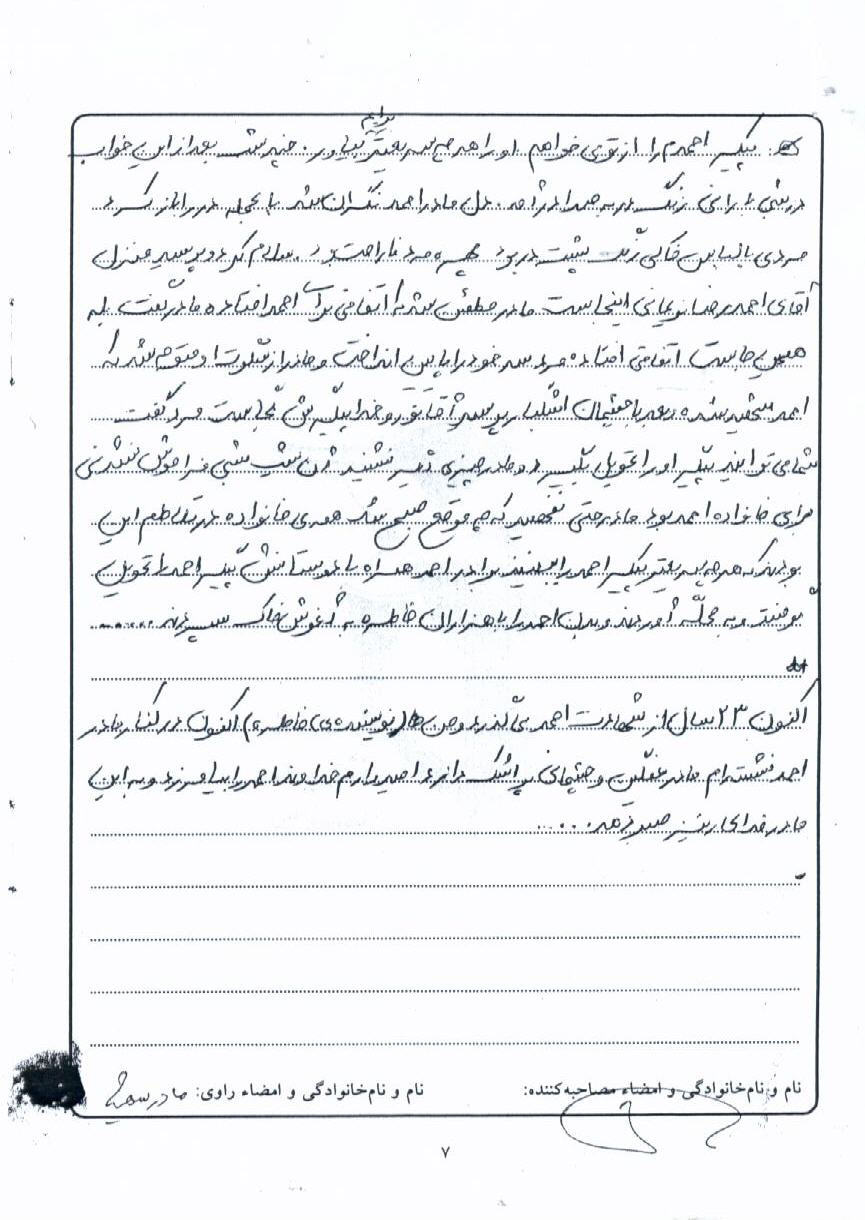 که: پیکر احمدم را از تو می خواهم او را هر چه سریعتر برایم بیاور. چند شب بعد از این خواب
در شبی بارانی زنگ در به صدا در آمد. دل مادر احمد نگران شد با عجله در را باز کرد
مردی با لباس خاکی رنگ پشت در بود چهره مرد ناراحت بود. سلام کرد و پرسید منزل
آقای احمدرضا نریمانی اینجاست مادر مطمئن شد که اتفاقی برای احمد افتاده مادر گفت بله
همین جاست اتفاقی افتاده مرد سر خود را پایین انداخت و مادر از سکوت او متوجه شد که
احمد شهید شده و بعد با چشمان اشکبار پرسید آقا تو رو خدا پیکرش کجاست مرد گفت
شما می توانید پیکر او را تحویل بگیرید و مادر چیزی دیگر نشنید آن شب شبی فراموش نشدنی
برای خانواده احمد بود مادر حتی نفهمید که چه موقع صبح شد همه ی خانواده در تلاطم این
بودند که هر چه سریعتر پیکر احمد را ببینند برادر احمد همراه با دوستانش پیکر احمد را تحویل
گرفتند و به محله آوردند و بدن احمد را با هزاران خاطره به آغوش خاک سپردند......
**
اکنون ۲۳ سال از شهادت احمد می گذرد و من (نویسنده ی خاطره) اکنون در کنار مادر
احمد نشسته ام مادر غمگین و چشمانی پر اشک دارد امیدوارم خداوند احمد را بیامرزد و به این
مادر فداکار نیز صبر بدهد....
نام و نام‌خانوادگی و امضاء مصاحبه‌کننده: نام و نام‌خانوادگی و امضاء راوی: مادر شهید
۷